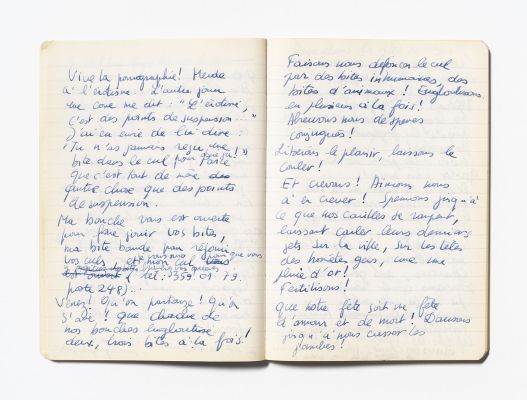 Vive la pornographie! Merde
à l'érotisme. L'autre jour
une conne me dit: "L'érotisme,
c'est des points de suspension..."
J'ai eu envie de lui dire:
"Tu n'as jamais reçu une
bite dans le cul pour
que c'est tout de même
autre chose que des points
de suspension.
Ma bouche vous est ouverte
pour faire jouir vos bites,
ma bite bande pour réjouir
vos culs et mon cul
(tel: 3359.01.79.
poste 248)...
Venez! Qu'on partouze! Qu'on
s'aime! Que chacune de
nos bouches engloutisse
deux, trois bites à la fois!
Faisons nous défoncer le cul
par des bites inhumaines, des
bites d'animaux! Engloutissons
en plusieurs à la fois!
Abreuvons nous de spermes
conjugués!
Libérons le plaisir, laissons le
couler!
Et crevons! Aimons nous
à en crever! Spermons jusqu'à
ce que nos couilles se vident,
laissant couler leurs derniers
jets sur la ville, sur les têtes
des honnêtes gens, comme une
pluie d'or!
Fertilisons!
Que notre fête soit une fête
d'amour et de mort! Dansons
jusqu'à nous casser les
jambes!